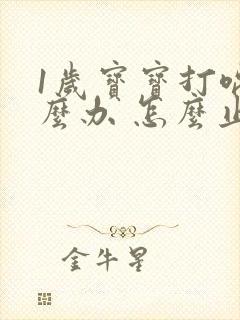 1歲寶寶打
麼办 怎麼止
金牛星